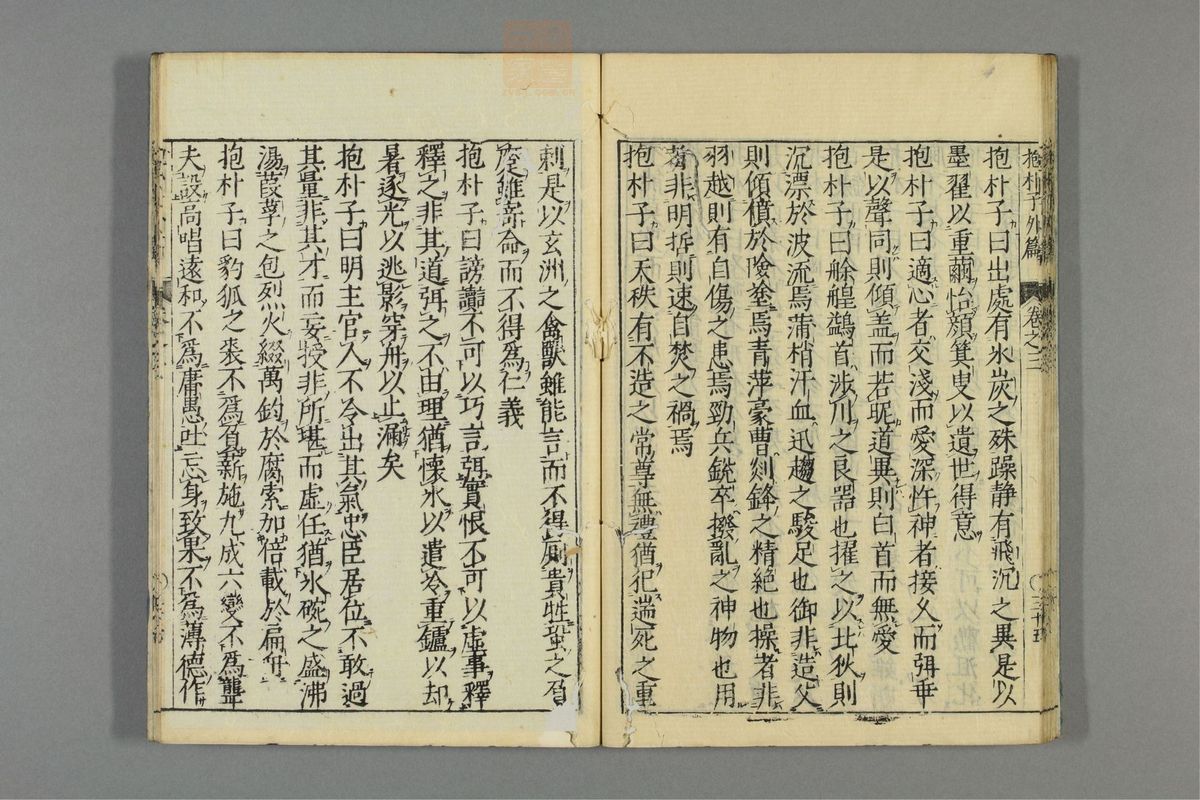 抱朴子外篇 卷之三 三十五
抱朴子曰出處有氷炭之殊躁静有飛沉之異是以
墨翟以重繭怡顔箕叟以遺世得意
抱朴子曰適心者交淺而愛深忤神者接乆而弭乖
是以聲同則傾盖而若昵道異則白首而無愛
抱朴子曰艅艎鷁首涉川之良器也擢之以北狄則
沉漂於波流焉蒲梢汗血迅趨之駿足也御非造父
則傾僨於嶮塗焉青萍豪曹剡鋒之精絶也操者非
羽越則有自傷之患焉勁兵銳卒撥亂之神物也用
者非明哲則速自焚之禍焉
抱朴子曰天秩有不遷之常尊無禮猶犯遄死之重
刺是以玄洲之禽獸雖能言而不得厠貴牲蛩之負
蹷雖寄命而不得爲仁義
抱朴子曰謗讟不可以巧言弭實恨不可以虛事釋
釋之非其道弭之不由理猶懷氷以遣冷重鑪以却
暑逐光以逃影穿舟以止漏矣
抱朴子曰明主官人不令出其氣忠臣居位不敢過
其量非其才而妄授非所堪而虛任猶氷碗之盛沸
湯葭莩之包烈火綴萬鈞於腐索加倍載於扁舟
抱朴子曰豹狐之裘不爲負薪施九成六變不爲聾
夫設高唱遠和不爲庸愚吐忘身致果不爲薄德作